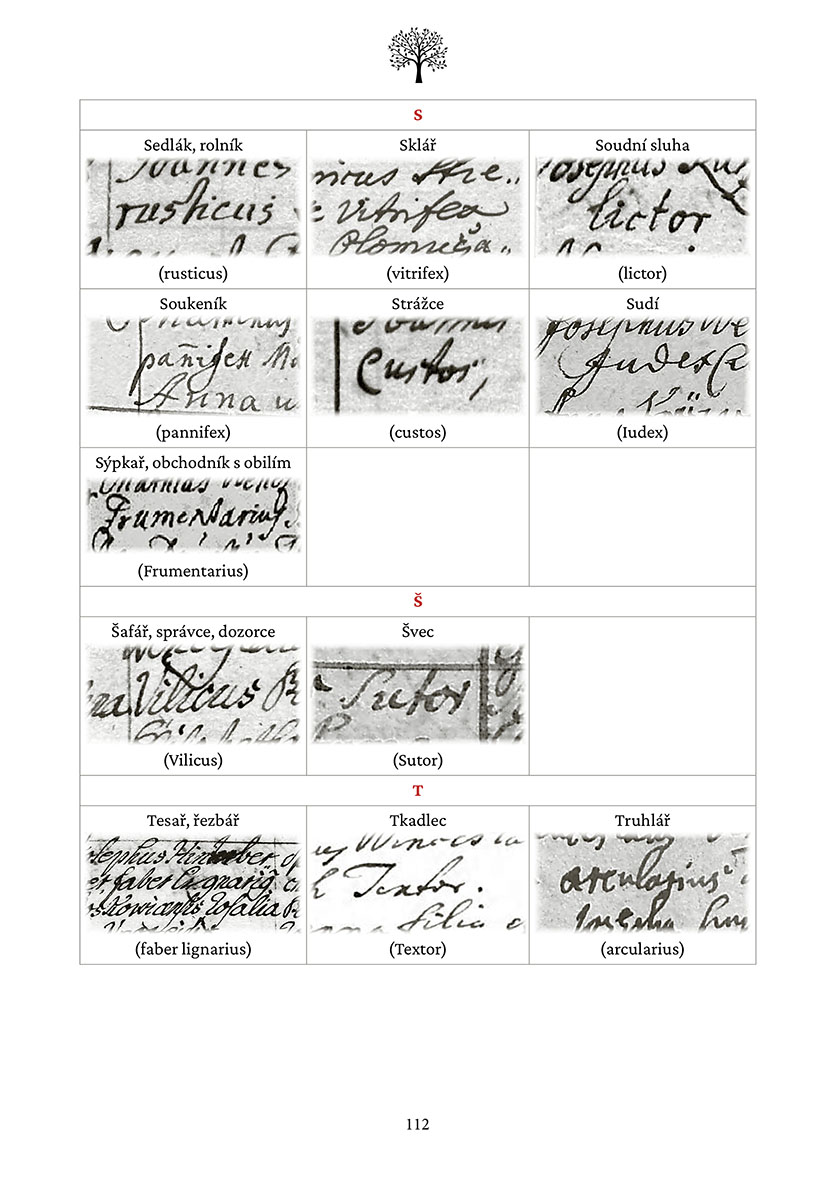 S
Sedlák, rolník
Joannes
rusticus
(rusticus)
Sklář
Vitrifex
(vitrifex)
Soudní sluha
Josephus
lictor
(lictor)
Soukeník
pañifex
Anna
(pannifex)
Strážce
Custos,
(custos)
Sudí
Josephus We
Judex
(Iudex)
Sýpkař, obchodník s obilím
Frumentarius
(Frumentarius)
Š
Šafář, správce, dozorce
Vilicus
(Vilicus)
Švec
Sutor
(Sutor)
T
Tesař, řezbář
faber
Rosalia
(faber lignarius)
Tkadlec
Textor.
filia
(Textor)
Truhlář
arcularius
(arcularius)
112